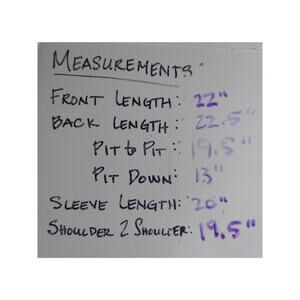 MEASUREMENTS
FRONT LENGTH: 22"
BACK LENGTH: 22.5"
PIT to PIT: 19.5"
PIT DOWN: 13"
SLEEVE LENGTH: 20"
SHOULDER 2 SHOULTER: 19.5"